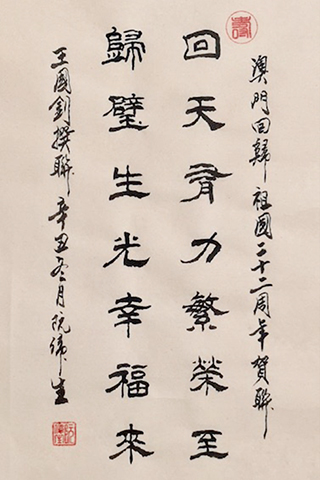 澳門回歸祖國二十二周年賀聯
回天有力繁榮至
歸璧生光幸福來
王國釗撰聯 辛丑冬月 阮衛生